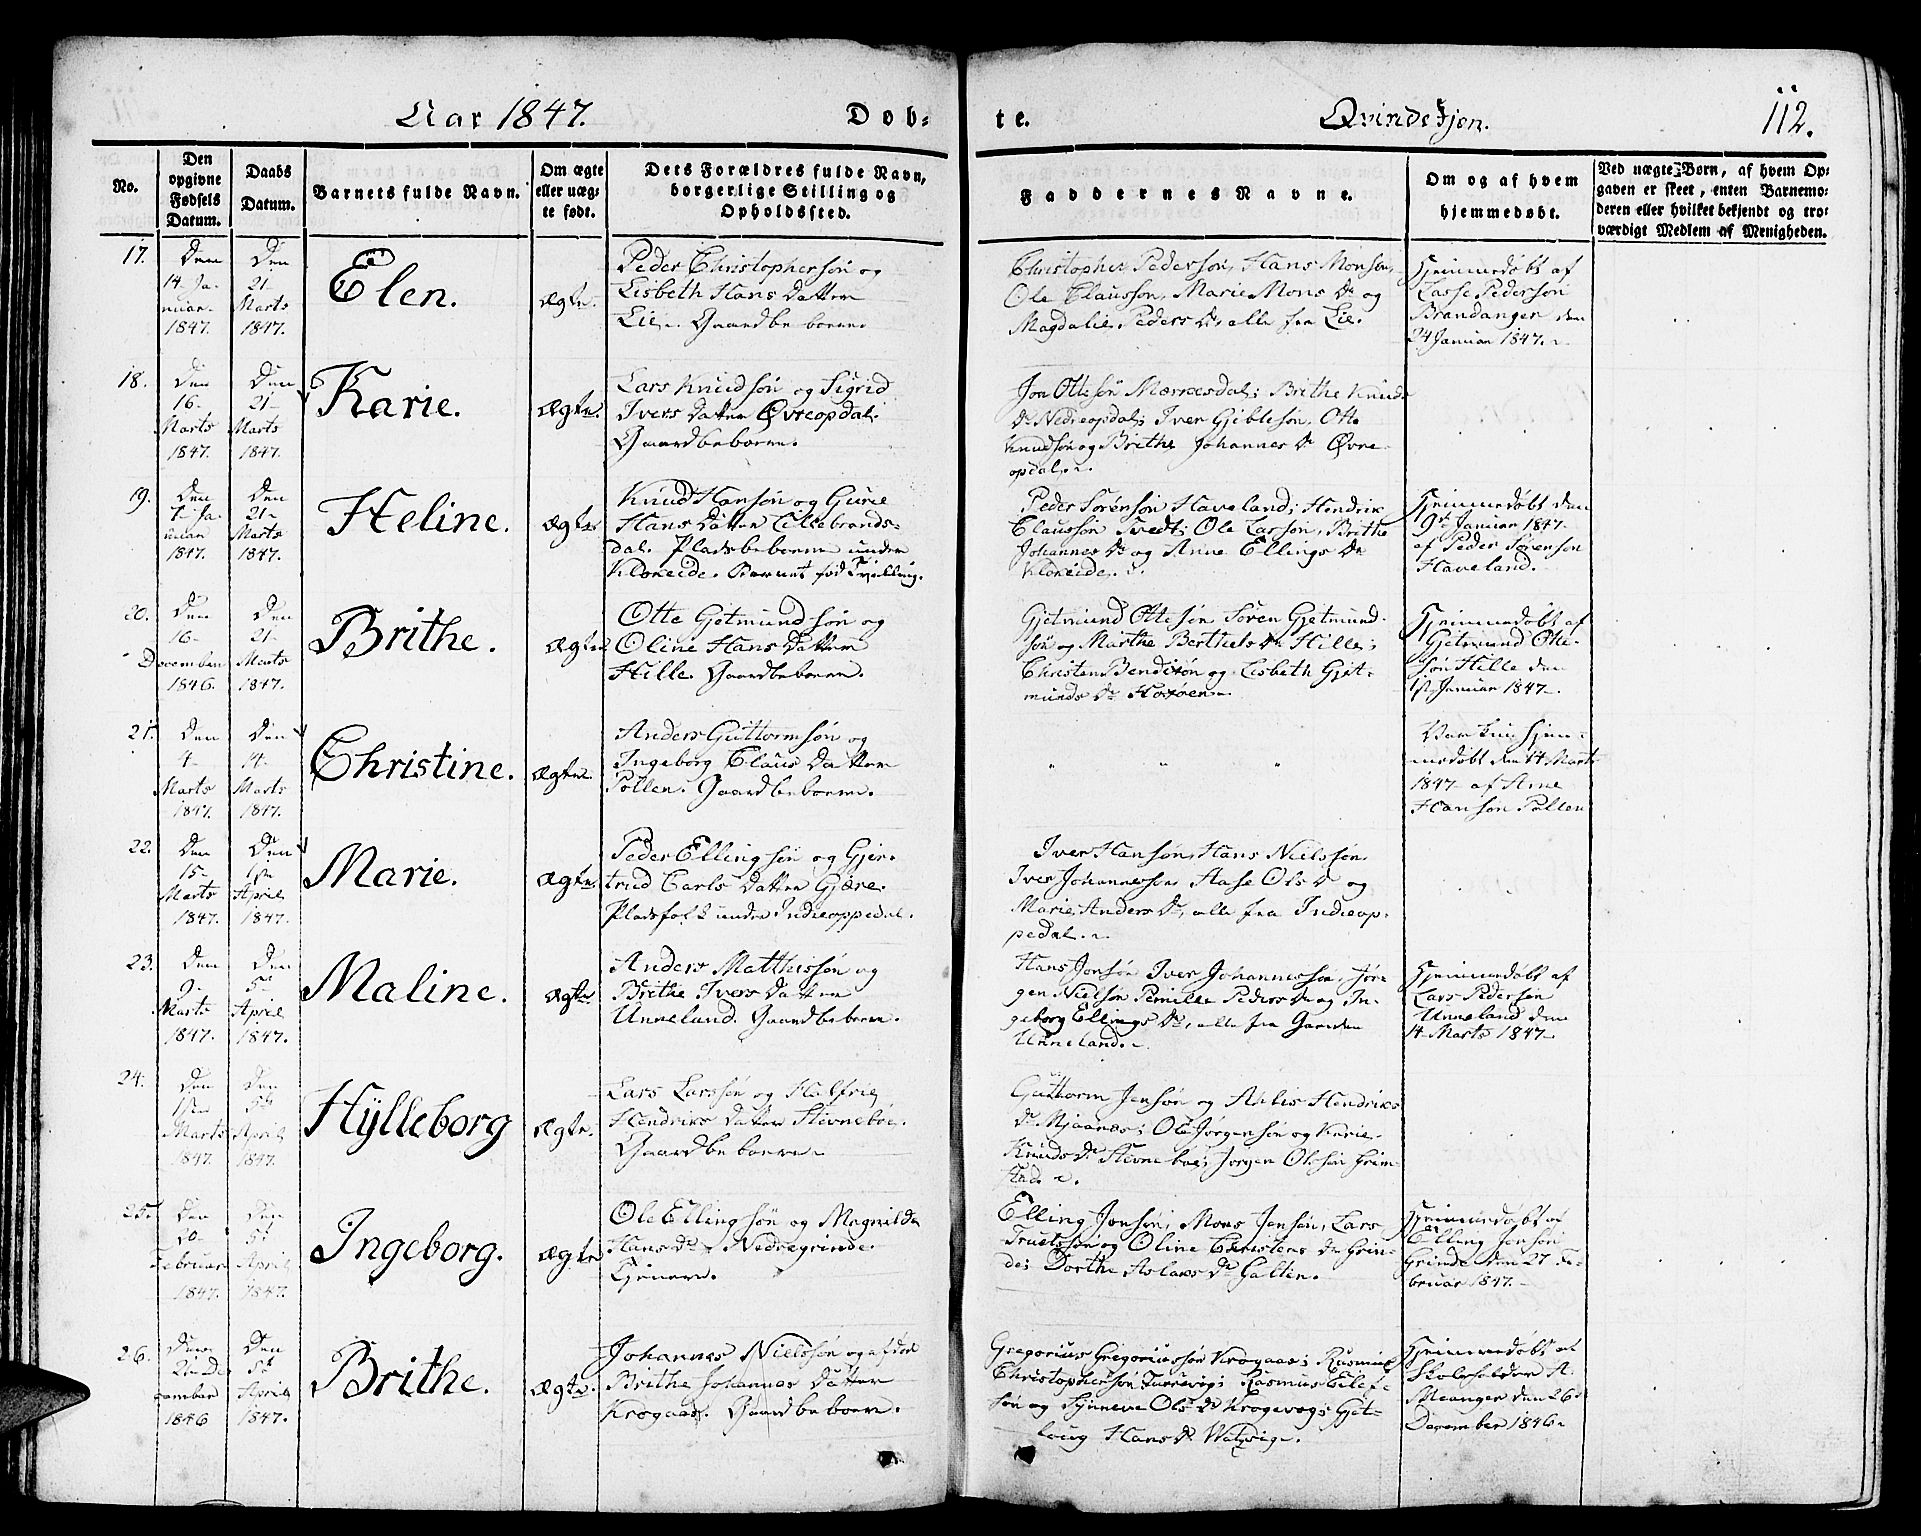 Aar 1847. Døb-
te. Qvindekjøn. 112.
No.
Den opgivne Fødsels Datum.
Daabs Datum.
Barnets fulde Navn.
Om ægte eller uæg-
te født.
Dets Forældres fulde Navn,
borgerlige Stilling og
Opholdssted.
Faddernes Navne.
Om og af hvem
hjemmedøbt.
Ved uægte Børn, af hvem Op-
gaven er skeet, enten Barnemo-
deren eller hvilket bekjendt og tro-
værdigt Medlem af Menigheden.
17.
Den
14 Ja-
nuar
1847.
Den
21-
Marts
1847.
Elen.
ægte.
Peder Christophersøn og
Lisbeth Hans Datter
Lie. Gaardbeboere.
Christopher Pedersøn, Hans Monsøn,
Ole Claussøn, Marie Mons Dr og
Magdalie Peders Dr, alle fra Lie.
Hjemmedøbt af
Lasse Pedersøn
Brandanger den
24 Januar 1847.
18.
Den
16-
Marts
1847.
Den
21-
Marts
1847.
Karie.
ægte.
Lars Knudsøn og Sigrid
Ivers Datter Øvreopdal.
Gaardbeboere.
Jon Ottesøn Mærresdal; Brithe Knuds
Dr Nedreopdal; Iver Gjeblesøn, Otte
Knudsøn og Brithe Johannes Dr Øvre-
opdal.
19.
Den
7 Ja-
nuar
1847.
Den
21-
Marts
1847.
Heline.
ægte
Knud Hansøn og Gurie
Hans Datter Lillebrands-
dal. Pladsbeboere under
Kloneide. Barnet fød Tvilling.
Peder Sørensøn Haveland; Hendrik
Claussøn Tvedt; Ole Larsøn, Brithe
Johannes Dr og Anne Ellings Dr
Kloneide.
Hjemmedøbt den
9de Januar 1847
af Peder Sørensøn
Haveland.
20.
Den
16-
December
1846.
Den
21-
Marts
1847.
Brithe.
ægte
Otte Gjetmundsøn og
Oline Hans Datter
Hille. Gaardbeboere.
Gjetmund Ottesøn, Søren Gjetmund-
søn og Marthe Berthels Dr Hille;
Christen Bendixøn og Lisbeth Gjet-
munds Dr Hosøen.
Hjemmedøbt af
Gjetmund Otte-
søn Hille den
1ste Januar 1847.
21.
Den
4-
Marts
1847.
Den
14.
Marts
1847.
Christine.
ægte.
Anders Guttormsøn og
Ingeborg Claus Datter
Pollen. Gaardbeboere.
" " "
Var kun hjem-
medøbt den 14 Marts
1847 af Arne
Hansøn Pollen
22.
Den
15-
Marts
1847.
Den
1ste
April
1847.
Marie.
ægte.
Peder Ellingsøn og Gjer-
trud Carls Datter Gjære.
Pladsfolk under Indreoppedal.
Iver Hansøn, Hans Nielssøn,
Iver Johannessøn, Aase Ols Dr og
Marie Anders Dr, alle fra Indreop-
pedal.
23.
Den
9-
Marts
1847.
Den
5te
April
1847.
Maline.
ægte
Anders Matthissøn og
Brithe Ivers Datter
Unneland. Gaardbeboere.
Hans Jonsøn, Iver Johannessøn, Jør-
gen Nielsøn, Pernille Peders Dr og In-
geborg Ellings Dr, alle fra Gaarden
Unneland.
Hjemmedøbt af
Lars Pedersøn
Unneland den
14 Marts 1847
24.
Den
1ste
Marts
1847.
Den
5te
April
1847.
Hylleborg
ægte.
Lars Larssøn og Halfrie
Hendriks Datter Stevneboe.
Gaardbeboere
Guttorm Jensøn og Ahlis Hendriks
Dr Mjaanæs; Ole Jørgensøn og Karie
Knuds Dr Stevneboe; Jørgen Olssøn Grim-
stad.
25.
Den
20-
Februar
1847.
Den
5te
April
1847.
Ingeborg.
ægte
Ole Ellingsøn og Magnilda
Hans Dr Nedregrinde.
Tjenere.
Elling Jonsøn, Mons Jensøn, Lars
Truelssøn og Oline Christens Dr Grin-
de; Dorthe Aslaks Dr Halten.
Hjemmedøbt af
Elling Jonsøn
Grinde den 27 Fe-
bruar 1847.
26.
Den
22de De-
cember
1846
Den
5te
April
1847.
Brithe.
ægte.
Johannes Nielssøn og afdøde
Brithe Johannes Datter
Krogaas. Gaardbeboere.
Gregorius Gregoriussøn Krogaas; Rasmus
Christophersøn Rasmus Eilef-
søn og Synneve Ols Dr Krogevog; Gjet-
loug Hans Dr
Hjemmedøbt af
Skoleholder A.
Meanger den 26de
December 1846